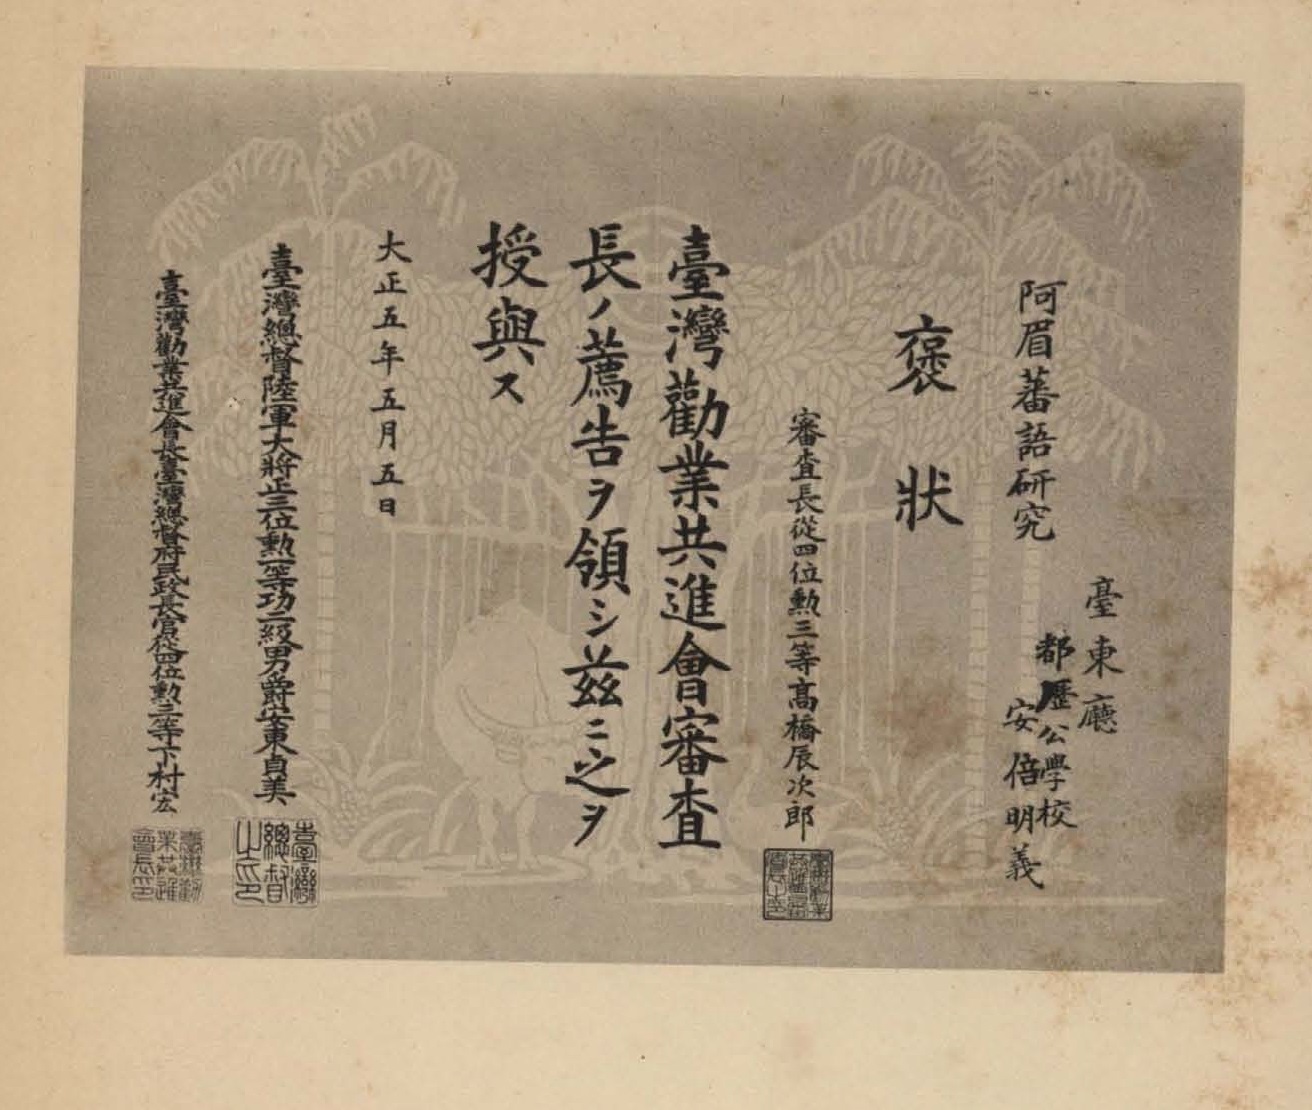 阿眉蕃語研究
臺東廳
都歷公學校
安倍明義
褒狀
審査長從四位勲三等高橋辰次郎
臺灣勸業共進會審査
長ノ薦告ヲ領シ茲ニ之ヲ
授與ス
大正五年五月五日
臺灣總督陸軍大將正三位勲一等功二級男爵安東貞美
臺灣總督之印
臺灣勸業共進會長臺灣總督府民政長官從四位勲三等下村宏
臺灣勸業共進會長印